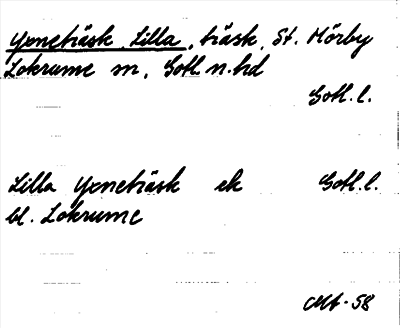 Yxneträsk, Lilla, träsk, St. Mörby
Lokrume sn, Gotl. n. hd
Gotl. l.
Lilla Yxneträsk ek Gotl. l.
bl. Lokrume